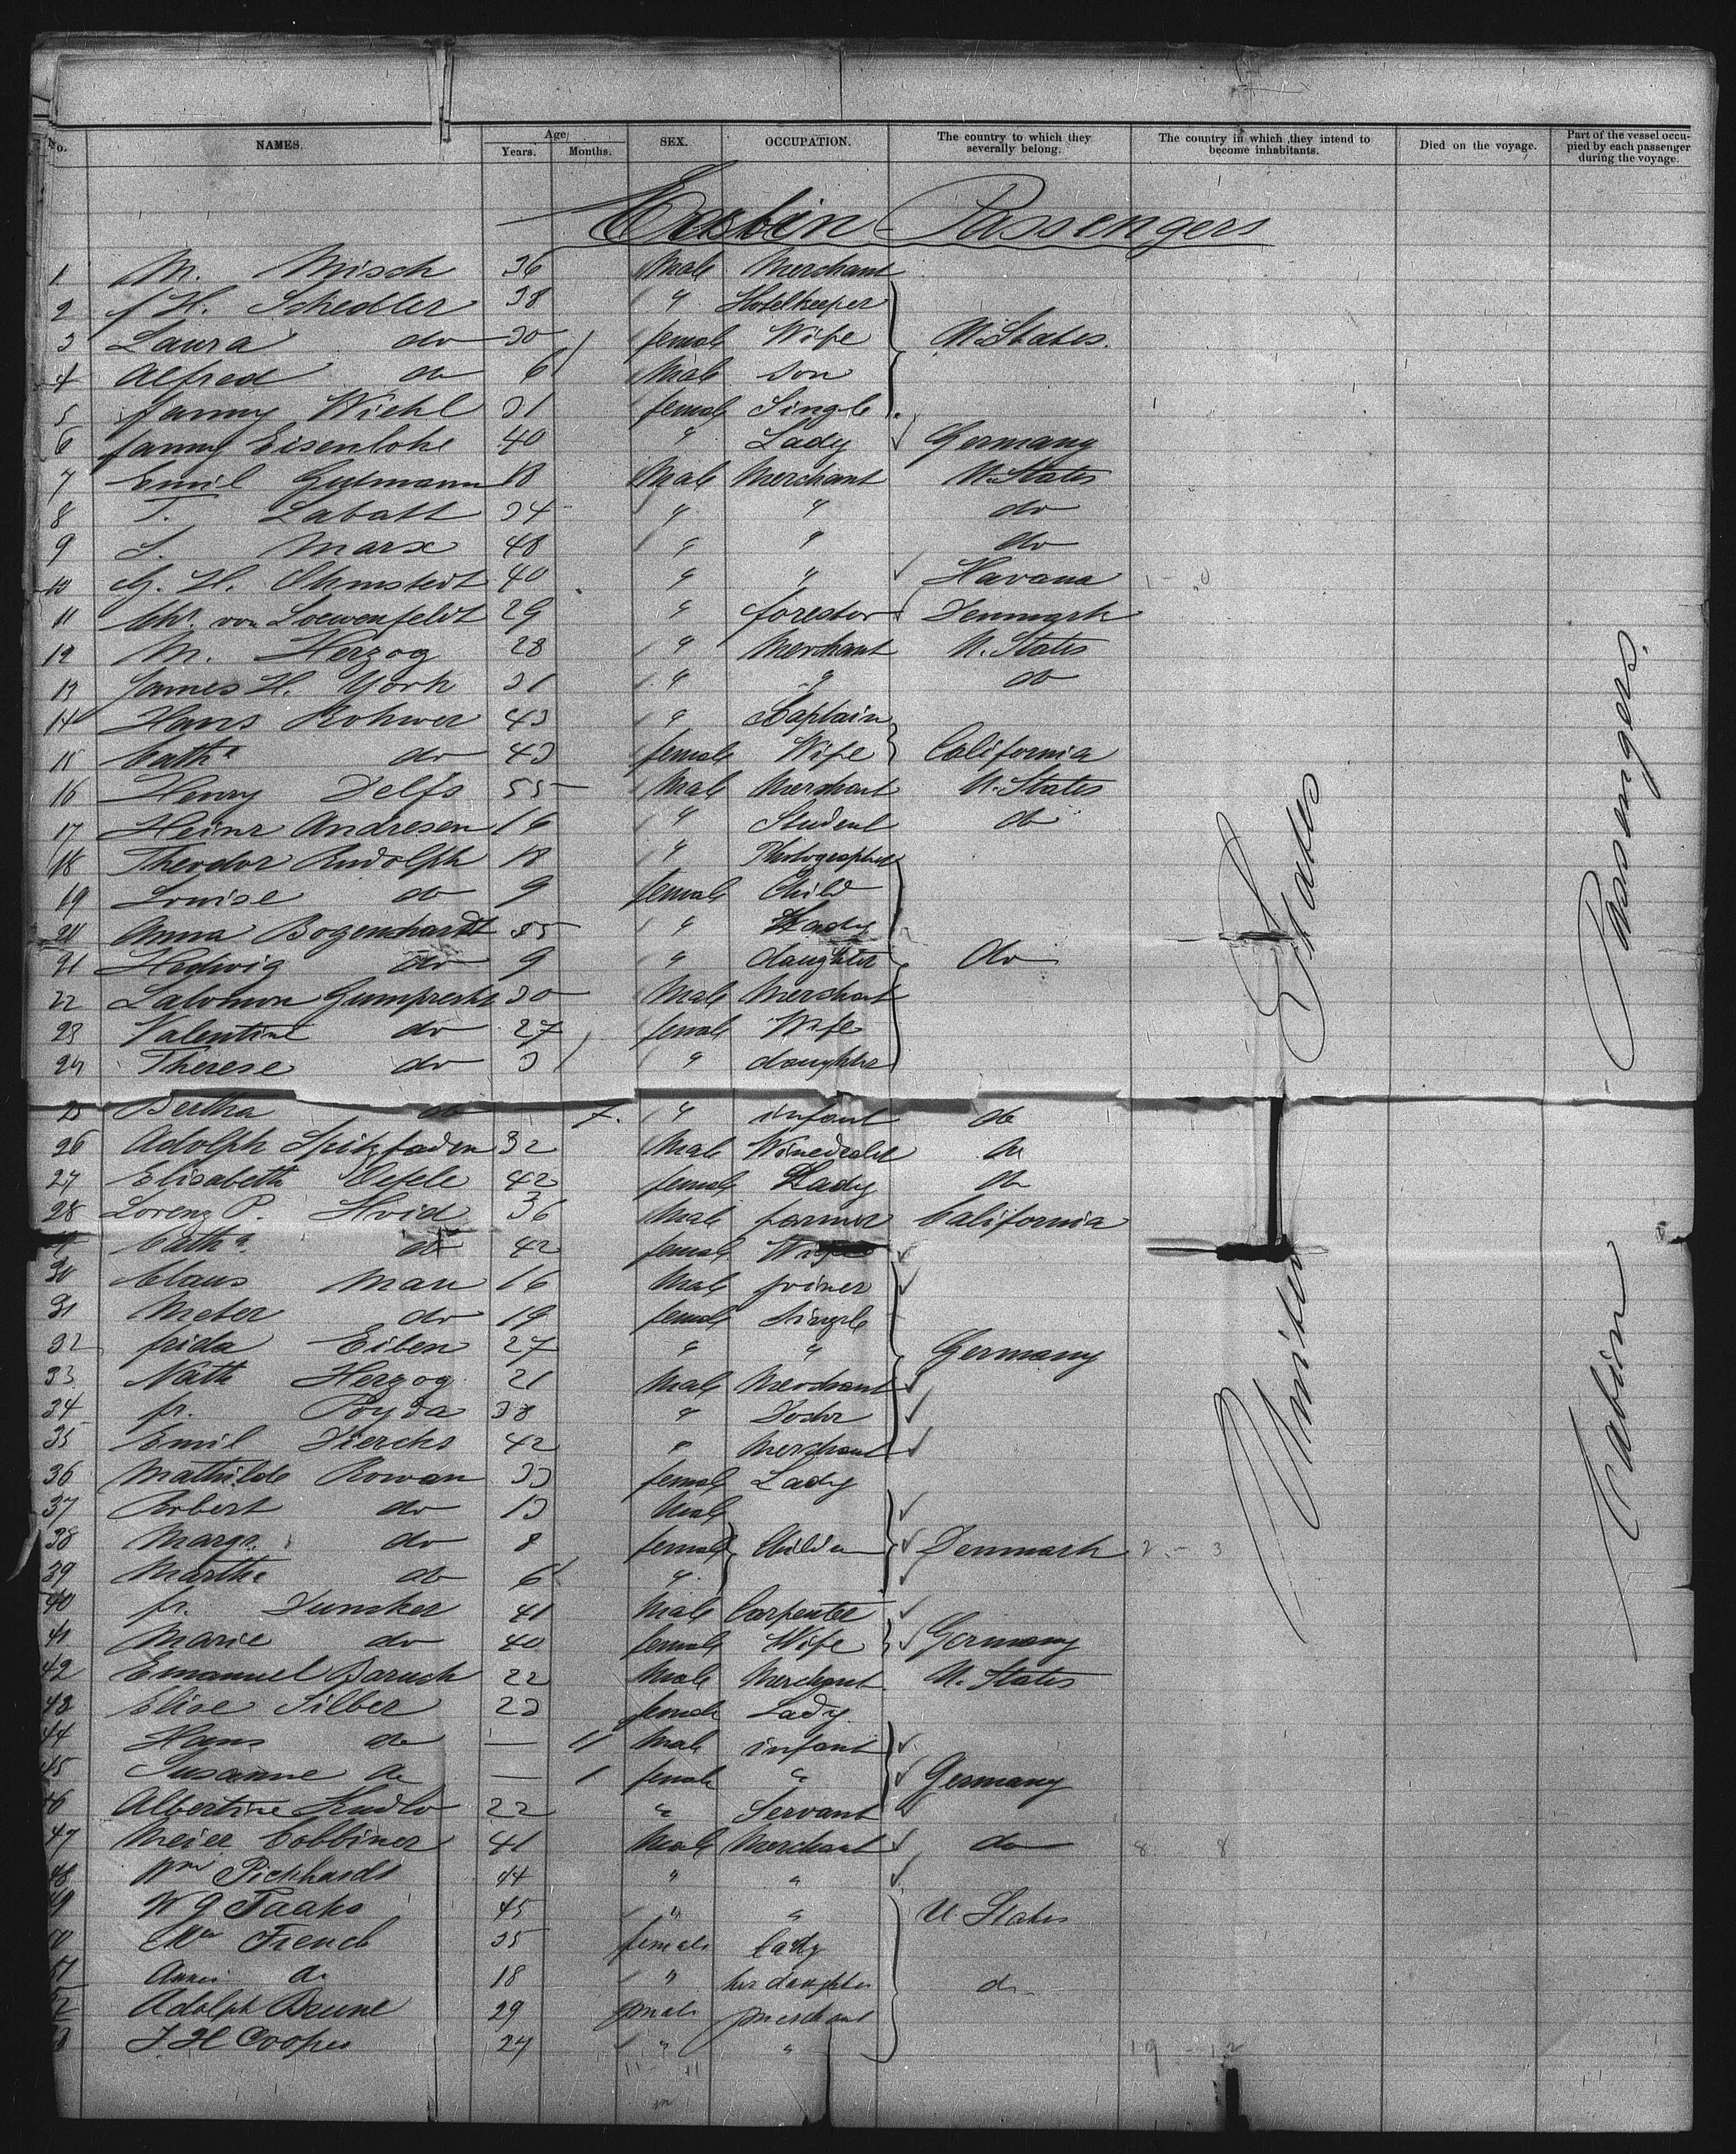 No. NAMES. Age Years. Months. SEX. OCCUPATION. The country to which they severally belong. The country in which they intend to become inhabitants. Died on the voyage. Part of the vessel occupied by each passenger during the voyage.
Passengers
1 M. Misch 36 Male Merchant
2 H. Schedler 38 " Hotelkeeper
3 Laura do 30 female Wife U. States.
4 Alfred do 6 Male Son
5 Fanny Wiehl 31 female Single
6 Fanny Eisenlohe 40 " Lady Germany
7 Emil Gutmann 18 Male Merchant U. States
8 T. Labatt 34 " " do
9 S. Marx 48 " " do
10 G. H. Ohmstedt 40 " " Havana
11 Chr. von Loewenfeldt 29 " forester Denmark
12 M. Herzog 28 " Merchant U. States
13 James H. York 31 " " do
14 Hans Rohwer 43 " Captain
15 Catha do 43 female Wife California
16 Henry Delfs 55 Male Merchant U. States
17 Heinr Andresen 16 " Student do
18 Theodor Rudolph 18 " Photographer
19 Louise do 9 female Child
20 Anna Bogenhardt 35 " Lady
21 Hedwig do 9 " daughter do
22 Salomon Gumprecht 30 Male Merchant
23 Valentine do 27 female Wife
24 Therese do 3 " daughter
25 Bertha do 7. " infant do
26 Adolph Spitzfaden 32 Male Winedealer do
27 Elisabeth Oefele 42 female Lady do
28 Lorenz P. Hvid 36 Male farmer California
29 Catha do 42 female Wife
30 Claus Mau 16 Male joiner
31 Meter do 19 female Single
32 frida Eiben 27 " " Germany
33 Nath Herzog 21 Male Merchant
34 fr. Poyda 38 "
35 Emil Diercks 42 " Merchant
36 Mathilde Rowan 33 female Lady
37 Robert do 13 Male
38 Margr. do 8 female Children Denmark 2 - 3
39 Martha do 6 "
40 fr. Duncker 41 Male Carpenter
41 Marie do 40 female Wife Germany
42 Emanuel Baruch 22 Male Merchant U. States
43 Elise Silber 23 female Lady
44 Hans do — 11 Male infant
45 Susanne do — 1 female " Germany
46 Albertine 22 " Servant
47 Meier Cobbiner 41 Male Merchant do 8 8
48 Wm Pickhardt 44 " "
49 W G Taaks 45 " " U. States
50 French 35 female lady
51 Annie do 18 " her daughter do
52 Adolph Brune 29 male merchant
53 J H Cooper 24 " " 19 - 12
United States
Cabin Passengers.